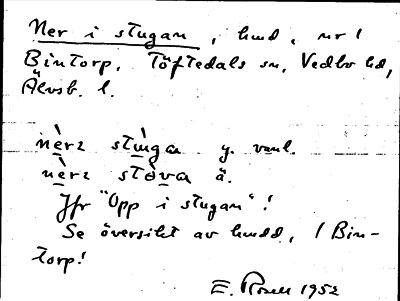 Ner i stugan, hmd, nr 1
Bintorp, Töftedals sn, Vedbo hd,
Älvsb. l.
nèrz stùga y. vanl.
nèrz stòva ä.
Jfr "Opp i stugan"!
Se översikt av hmdd, 1 Bin-
torp!
E. Rosell 1952